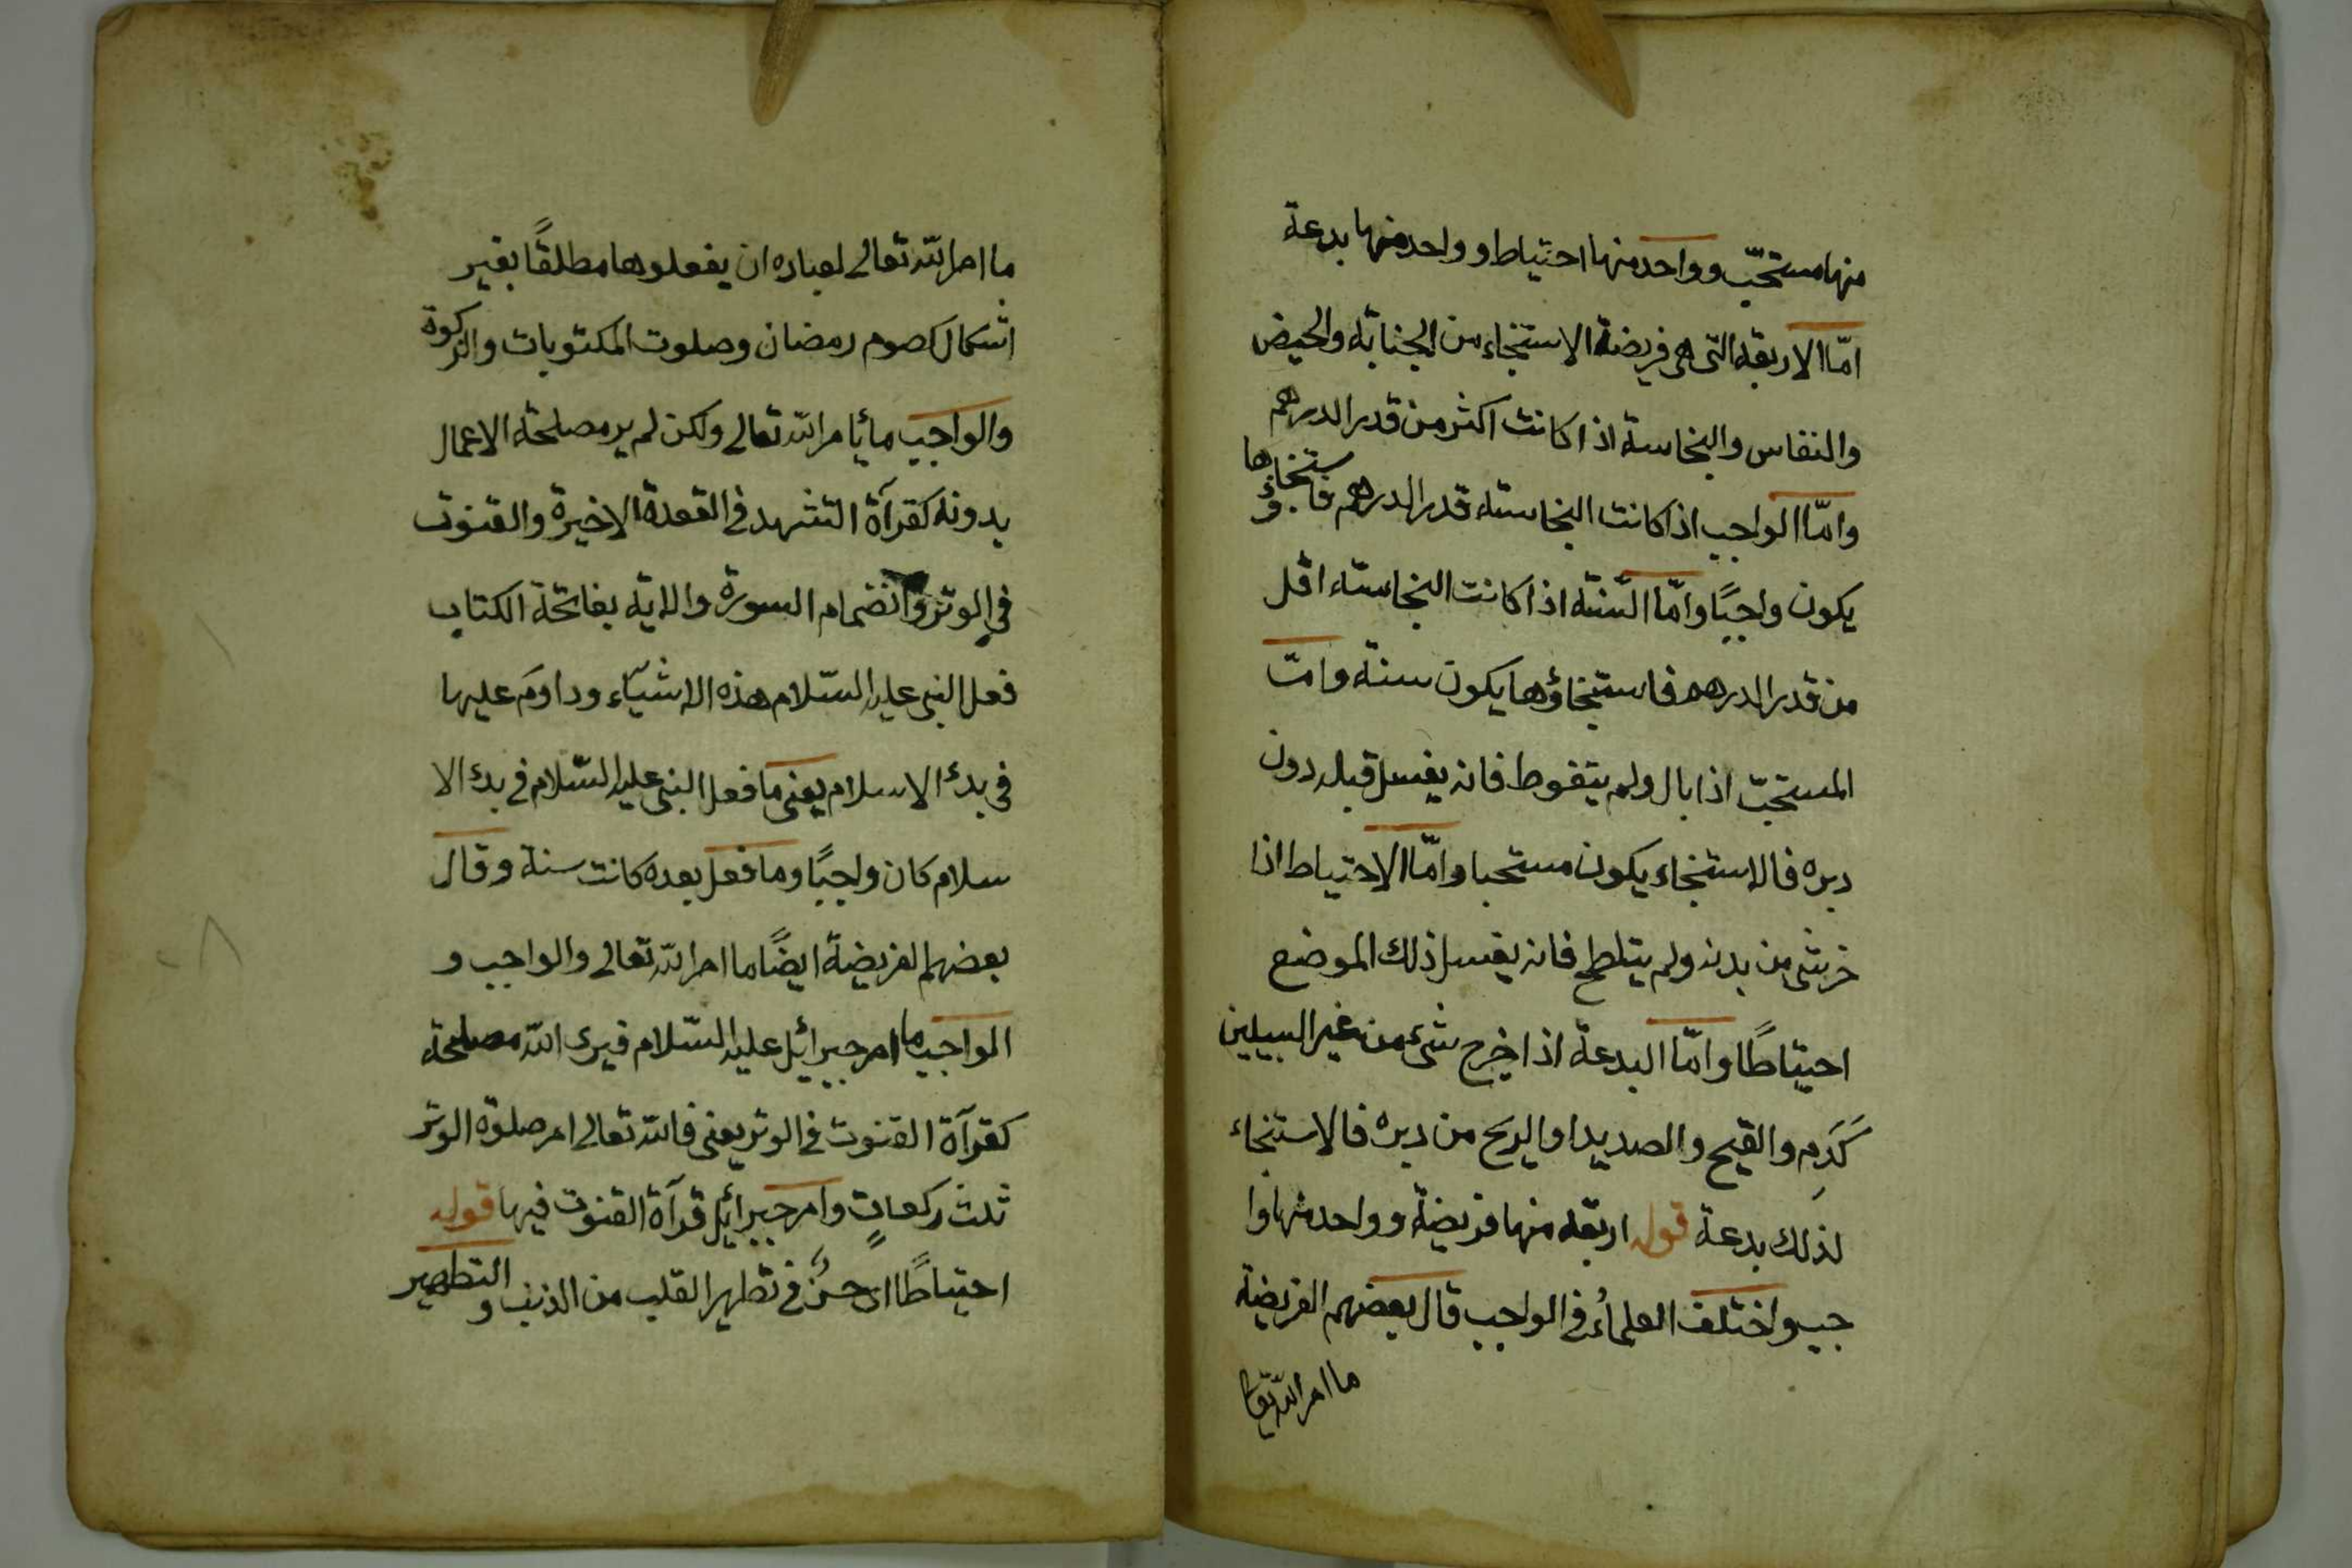 منها مستحبّ وواحد منها احتياط وواحد منها بدعة
امّا الاربعة التى هى فريضة الاستنجاء من الجنابة والحيض
والنفاس والنجاسة اذا كانت اكثر من قدر الدرهم
وامّا الواجب اذا كانت النجاسة قدر الدرهم فاستنجاؤها
يكون واجبًا وامّا السّنّة اذا كانت النجاسة اقل
من قدر الدرهم فاستنجاؤها يكون سنة وامّا
المستحبّ اذا بال ولم يتغوط فانه يغسل قبله دون
دبره فالاستنجاء يكون مستحبا وامّا الاحتياط اذا
خر شئ من بدنه ولم يتلطح فانه يغسل ذلك الموضع
احتياطًا وامّا البدعة اذا خرج شئ من غير السبيلين
كَدَمٍ والقيح والصديد او الريح من دبره فالاستنجاء
لذلك بدعة قوله اربعة منها فريضة وواحد منها وا
جب واختلف العلماءُ فى الواجب قال بعضهم الفريضة
ما امر الله تعا
ما امر الله تعالى لعباده ان يفعلوها مطلقًا بغير
اشكال كصوم رمضان وصلوت المكتوبات والزكوة
والواجب ما يأمر الله تعالى ولكن لم ير مصلحة الاعمال
بدونه كقرآة التشهد فى القعدة الاخيرة والقنوت
فى الوتر وانضمام السورة والاية بفاتحة الكتاب
فعل النبى عليه السّلام هذه الاشيّاء وداومَ عليها
فى بدء الاسلام يعنى ما فعل النبى عليه السّلام فى بدء الا
سلام كان واجبًا وما فعل بعده كانت سنة وقال
بعضهم الفريضة ايضًا ما امر الله تعالى والواجب و
الواجب ما امر جبرائيل عليه السّلام فيرى الله مصلحة
كقرآة القنوت فى الوتر يعنى فالله تعالى امر صلوة الوتر
ثلث ركعاتٍ وامر جبرائيل قرآة القنوت فيها قوله
احتياطًا اى حسُنٌ فى تطهير القلب من الذنب والتطهير